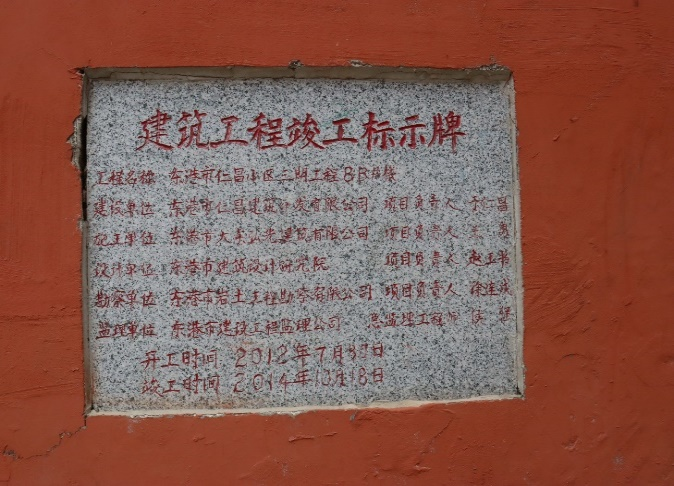 建筑工程竣工标示牌
工程名称 东港市仁昌小区二期工程 8#楼
建设单位 东港市仁昌建筑开发有限公司 项目负责人 于仁昌
施工单位 东港市大孤山 建筑有限公司 项目负责人
设计单位 东港市建筑设计研究院 项目负责人 赵玉
勘察单位 东港市岩土工程勘察有限公司 项目负责人 徐
监理单位 东港市建设工程监理公司 总监理工程师
开工时间 2012年7月 日
竣工时间 2014年10月18日